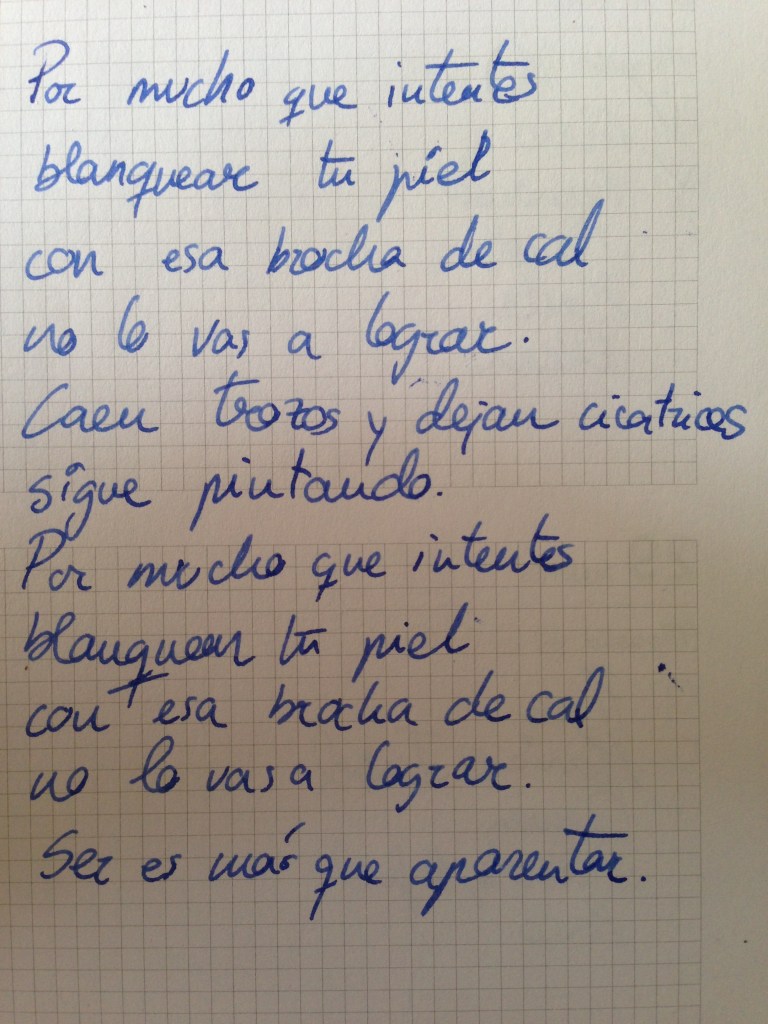 Por mucho que intentes
blanquear tu piel
con esa brocha de cal
no lo vas a lograr.
Caen trozos y dejan cicatrices
sigue pintando.
Por mucho que intentes
blanquear tu piel
con esa brocha de cal
no lo vas a lograr.
Ser es más que aparentar.